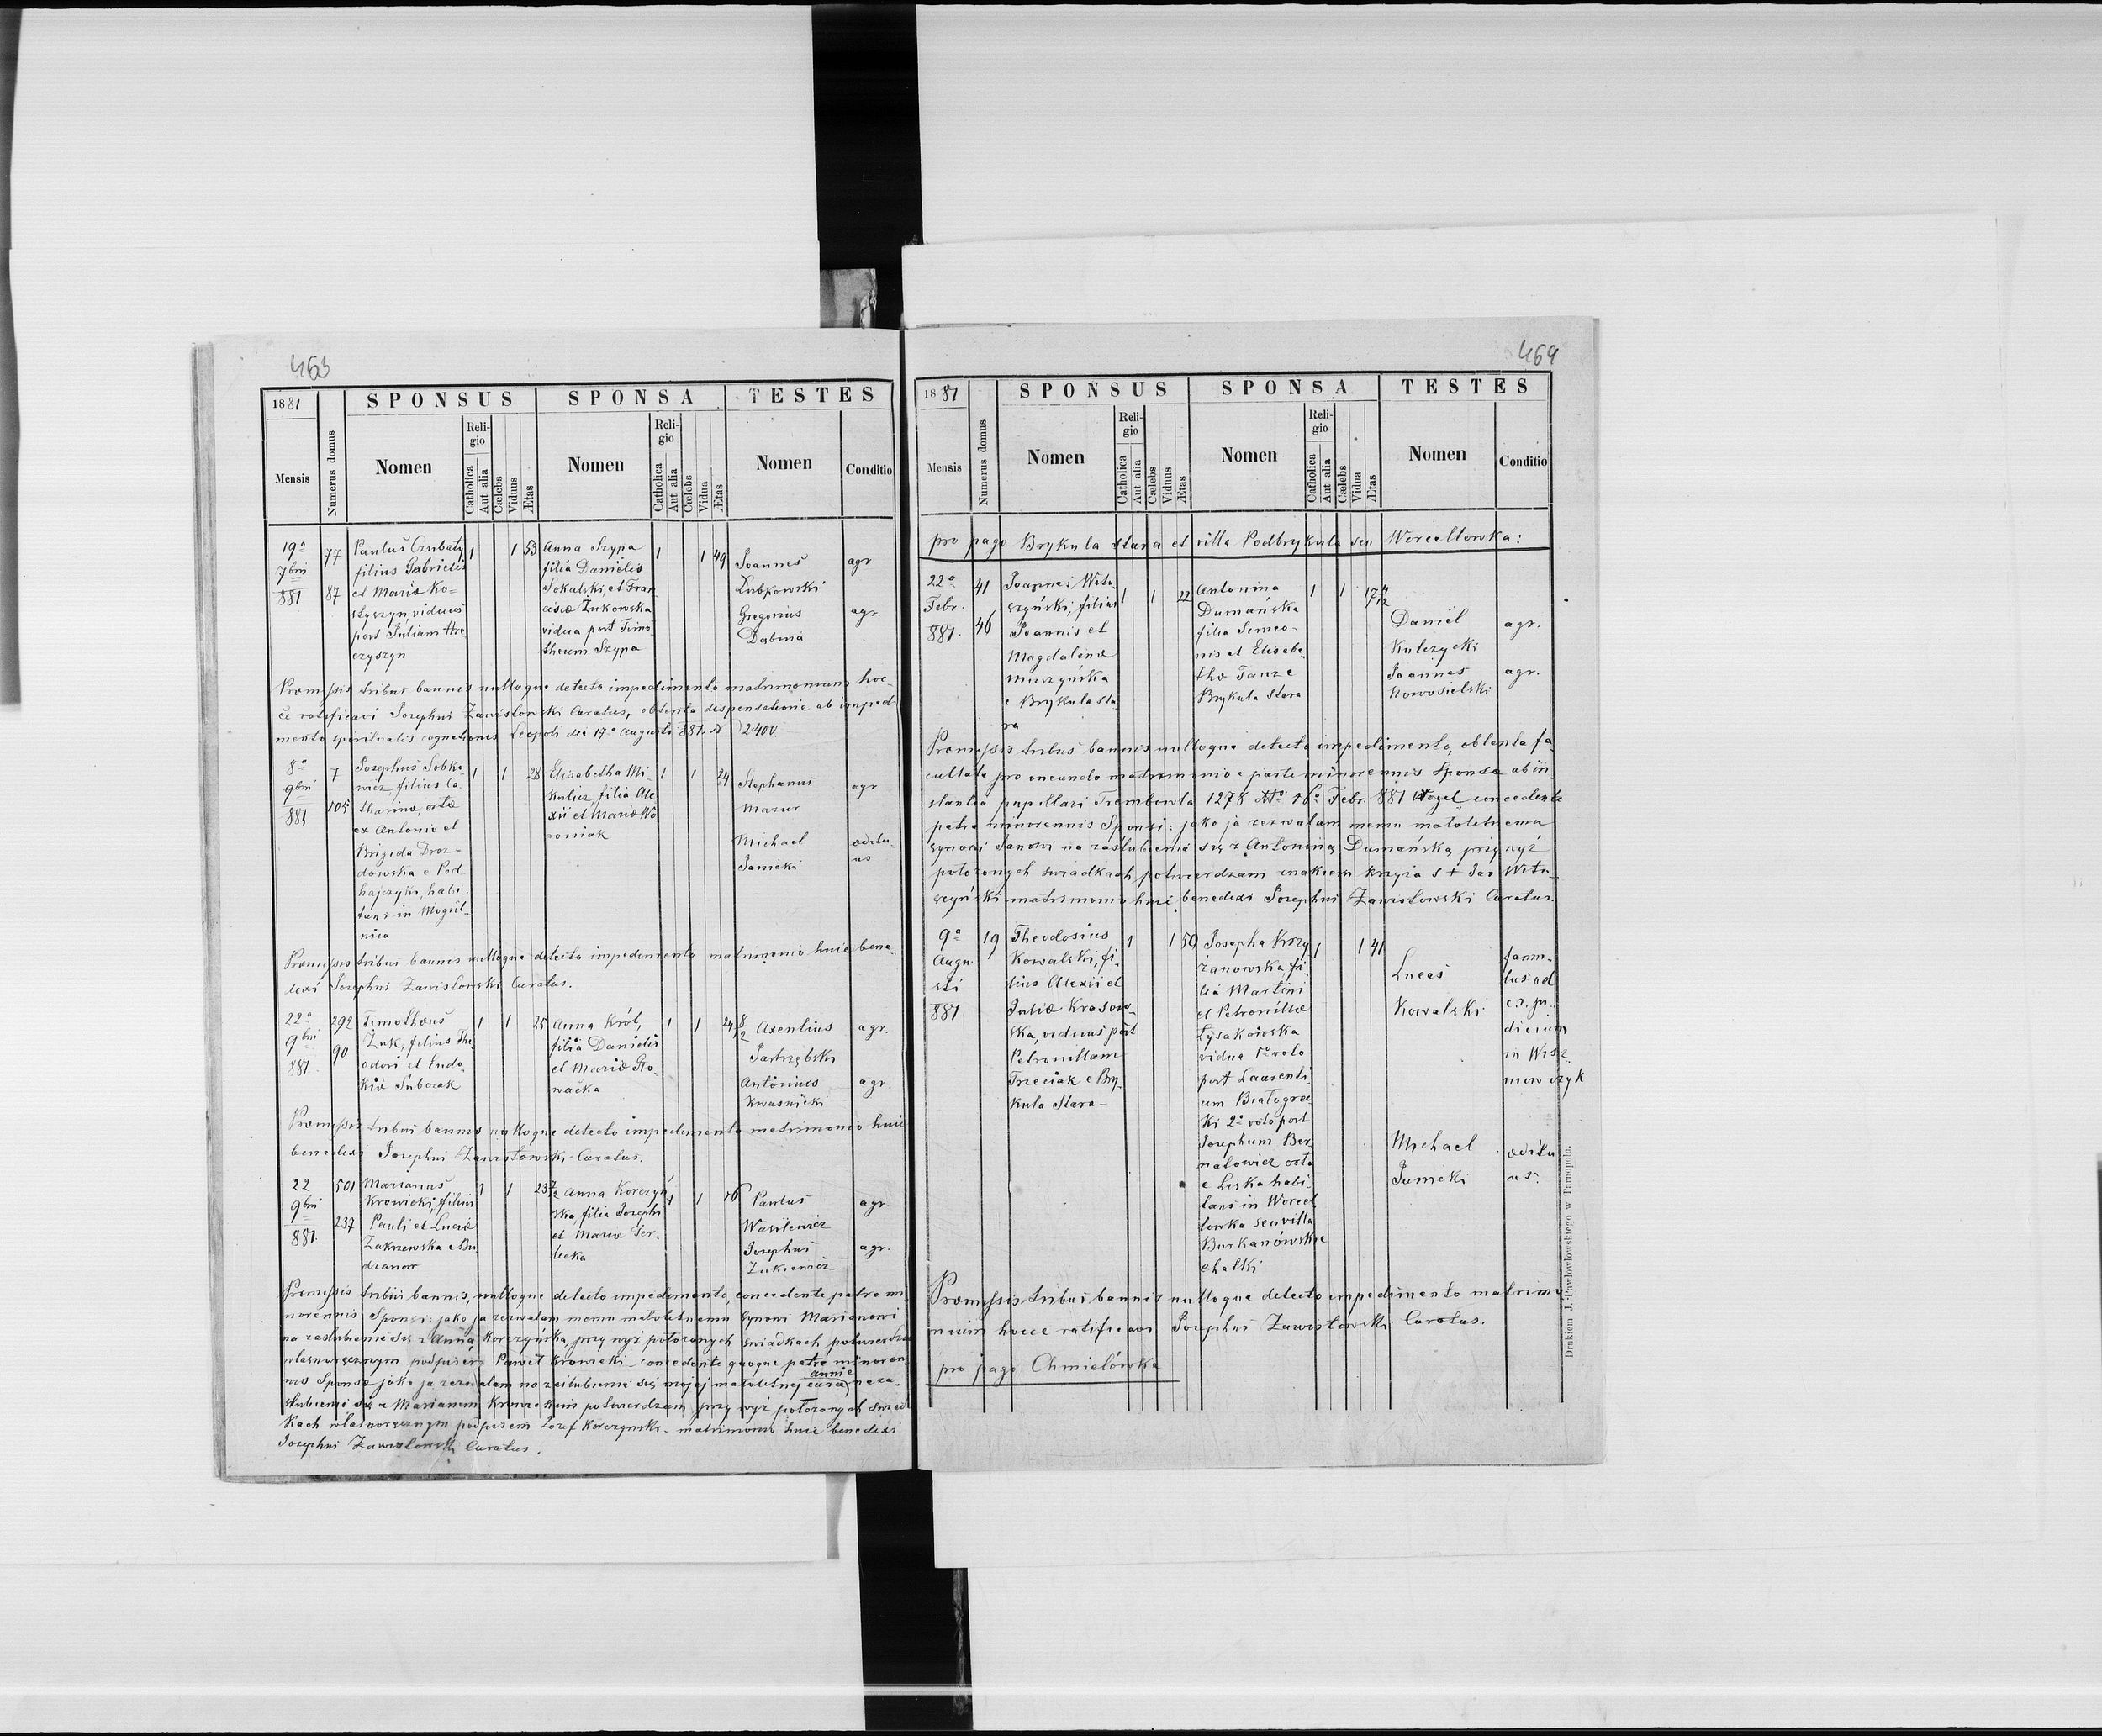 463
18 81
SPONSUS
SPONSA
TESTES
Mensis
Numerus domus
Nomen
Religio
Catholica
Aut alia
Cælebs
Viduus
Ætas
Nomen
Religio
Catholica
Aut alia
Cælebs
Vidua
Ætas
Nomen
Conditio
19a
7bri
881
77
87
Paulus Czubaty
filius Gabrielis
et Mariæ Ko=
styszyn, viduus
post Juliam Hre
czyszyn
1 1 53
Anna Szypa
filia Danielis
Sokalski, et Fran
ciscæ Żukowska
vidua post Timo
theum Szypa
1 1 49
Joannes
Lubkowski
agr
Gregorius
Dabma
agr.
Præmissis tribus bannis nulloque detecto impedimento matrimonium hoc-
ce ratificavi Josephus Zawisłowski Curatus, obtenta dispensatione ab impedi
mento spiritualis cognationis Leopoli dei 17a Augusti 881 N 2400
8a
9bri
881
7
105
Josephus Sobko
wicz, filius Ca
tharinæ, ortæ
ex Antonio et
Brigida Droz-
dowska e Pod
hajczyki, habi-
tans in Mogiel-
nica
1 1 28
Elisabetha Mi-
kulicz, filia Ale
xii et Mariæ Wo
roniak
1 1 24
Stephanus
Mazur
agr
Michael
Janicki
æditu
us
Præmissis tribus bannis nulloque detecto impedimento matrimonio huic bene-
dixi Josephus Zawisłowski Curatus.
22a
9bri
881
292
90
Timotheus
Żuk, filius The
odori et Eudo-
kiæ Subczak
1 1 25
Anna Król,
filia Danielis
et Mariæ Sło-
wacka
1 1 24
Axentius
Jastrzębski
agr.
Antonius
Kwasnicki
agr.
Præmissis tribus bannis nulloque detecto impedimento matrimonio huic
benedixi Josephus Zawisłowski Curatus.
22
9bri
881
501
237
Marianus
Krowicki, filius
Pauli et Luciæ
Zakrzewska e Bu
dzanow
1 1 23
Anna Korczyń
ska, filia Josephi
et Mariæ Ter-
lecka
1 1 16
Paulus
Wasilewicz
agr
Josephus
Zukiewicz
agr.
Præmissis tribus bannis, nulloque detecto impedimento, concedente patre mi
norennis Sponsi: jako ja zezwalam memu małoletnemu synowi Marianowi
na zaślubienie się z Anną Korczyńską, przy wyż położonych świadkach potwierdza
własnoręcznym podpisem Paweł Krowicki - concedente quoque patre minoren
nis Sponsæ jako ja zezwalam na zaślubienie się mojej małoletnej córce Annie na za-
ślubienie się z Marianem Krowickim potwierdzam przy wyż położonych świad
kach własnoręcznym podpisem Józef Korczynski - matrimonio huic benedixi
Josephus Zawisłowski Curatus.
464
18 81
SPONSUS
SPONSA
TESTES
Mensis
Numerus domus
Nomen
Religio
Catholica
Aut alia
Cælebs
Viduus
Ætas
Nomen
Religio
Catholica
Aut alia
Cælebs
Vidua
Ætas
Nomen
Conditio
pro pago Brykula stara et villa Podbrykula seu Worcellowka:
22a
Febr.
881.
41
46
Joannes Witu
szyński, filius
Joannis et
Magdalenæ
Muszyńska
e Brykula sta
ra
1 1 22
Antonina
Dumańska
filia Simeo-
nis et Elisabe-
thæ Tauze
Brykula Stara
1 1 17 4/12
Daniel
Kulczycki
agr.
Joannes
Nowosielski
agr.
Præmissis tribus bannis nulloque detecto impedimento, oblenta fa-
cultate pro ineundo matrimonio e parte minorennis Sponsæ ab in-
stantia pupillari Trembowla 1278 dto 16a Febr. 881 Wogel concedente
patre minorennis Sponsi: jako ja zezwalam memu małoletnemu
synowi Janowi na zaślubienie się z Antoniną Dumańską przy wyż
położonych świadkach potwierdzam znakiem krzyża s + Jan Witu-
szyński matrimonio huic benedixi Josephus Zawisłowski Curatus.
9a
Augu
sti
881
19
Theodosius
Kowalski, fi-
lius Alexii et
Juliæ Krasow-
ska, viduus post
Petronillam
Trzeciak e Bry-
kula Stara-
1 1 50
Josepha Krzy
żanowska, fi-
lia Martini
et Petronillæ
Łysakowska
vidua 1o voto
post Laurenti-
um Białogrec
ki 2o voto post
Josephum Ber-
natowicz orta
e Liska habi-
tans in Worcel
lowka seu villa
Burkanówskie
chatki
1 1 41
Lucas
Kowalski
famu-
lus ad
c. r. ju-
dicium
in Wisz
niowczyk
Michael
Junicki
æditu
us.
Præmissis tribus bannis nulloque detecto impedimento matrimo
nium hocce ratificavi Josephus Zawisłowski Curatus.
pro pago Chmielówka
Drukiem J. Pawłowskiego w Tarnopolu.